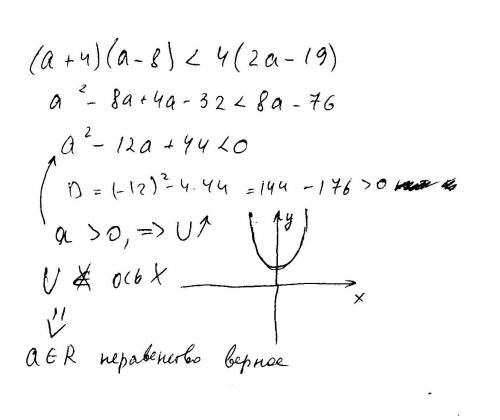 (a+4)(a-8) < 4(2a-19)
a² - 8a + 4a - 32 < 8a - 76
a² - 12a + 44 < 0
D = (-12)² - 4·44 = 144 - 176 > 0
a > 0, => U↑
y
U ось X
x
a ∈ R неравенство верное